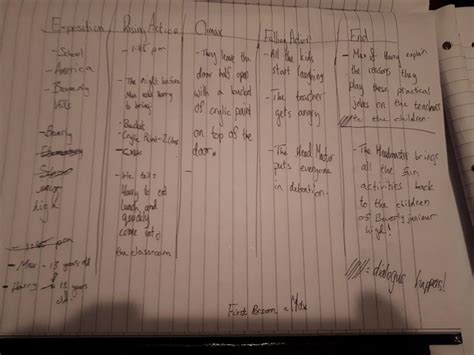 Exposition
- School
- America
- Beverly
Hills
- Beverly
junior
high
- Max - 13 years old
- Harry - 13 years
old.
Rising Action
- 1:45 pm
- The night before
Max told Harry
to bring:
- Bucket
- He tells
Harry to eat
lunch and
quickly
come into
the classroom
Climax
- They leave the
door half open
with a bucket
of crylic paint
on top of the
door.
Falling Action
- All the kids
start laughing
- The teacher
gets angry
- The Head Master
puts everyone
in detention.
End
- Max & Harry explain
the reasons they
play these practical
jokes on the teachers
to the children.
- The Headmaster brings
all the fun
activities back
to the children
of Beverly juniour
high!
= dialogue
happens!
First Person = Max